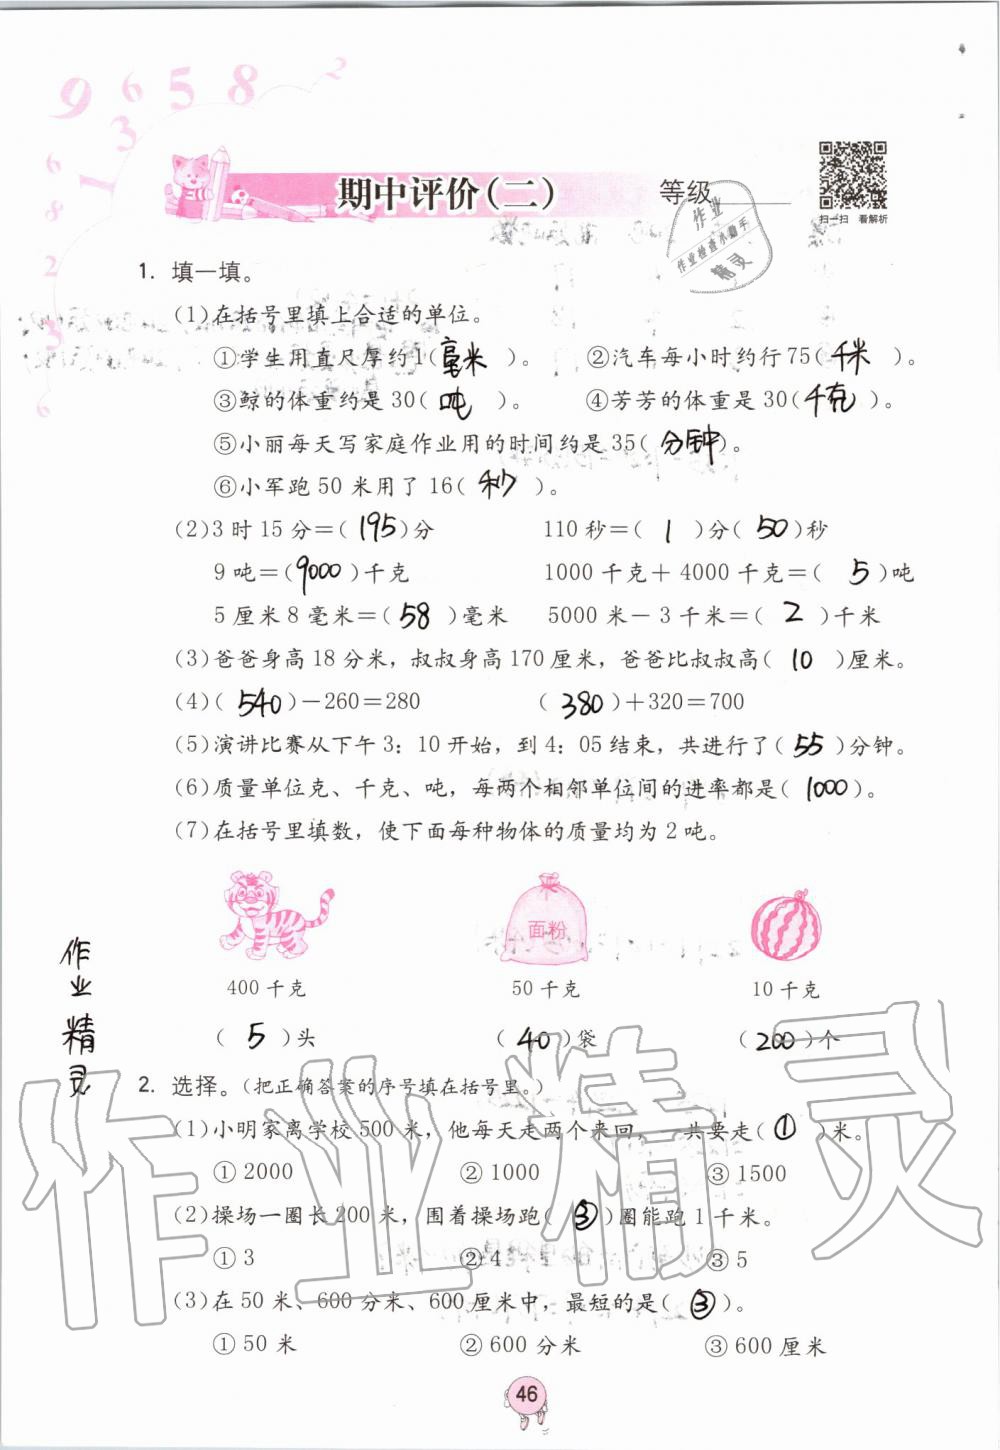 9 6 5 8 2
3
1
6
8
2
3
6
期中评价(二)
等级
扫一扫 看解析
作业
作业检查小助手
精灵
1. 填一填。
(1)在括号里填上合适的单位。
①学生用直尺厚约1(毫米)。 ②汽车每小时约行75(千米)。
③鲸的体重约是30(吨)。 ④芳芳的体重是30(千克)。
⑤小丽每天写家庭作业用的时间约是35(分钟)。
⑥小军跑50米用了16(秒)。
(2)3时15分=(195)分 110秒=(1)分(50)秒
9吨=(9000)千克 1000千克+4000千克=(5)吨
5厘米8毫米=(58)毫米 5000米-3千米=(2)千米
(3)爸爸身高18分米,叔叔身高170厘米,爸爸比叔叔高(10)厘米。
(4)(540)-260=280 (380)+320=700
(5)演讲比赛从下午3:10开始,到4:05结束,共进行了(55)分钟。
(6)质量单位克、千克、吨,每两个相邻单位间的进率都是(1000)。
(7)在括号里填数,使下面每种物体的质量均为2吨。
面粉
400千克 50千克 10千克
(5)头 (40)袋 (200)个
作业精灵
2. 选择。(把正确答案的序号填在括号里。)
(1)小明家离学校500米,他每天走两个来回,一共要走(①)米。
①2000 ②1000 ③1500
(2)操场一圈长200米,围着操场跑(③)圈能跑1千米。
①3 ②4 ③5
(3)在50米、600分米、600厘米中,最短的是(③)。
①50米 ②600分米 ③600厘米
作业精灵
46